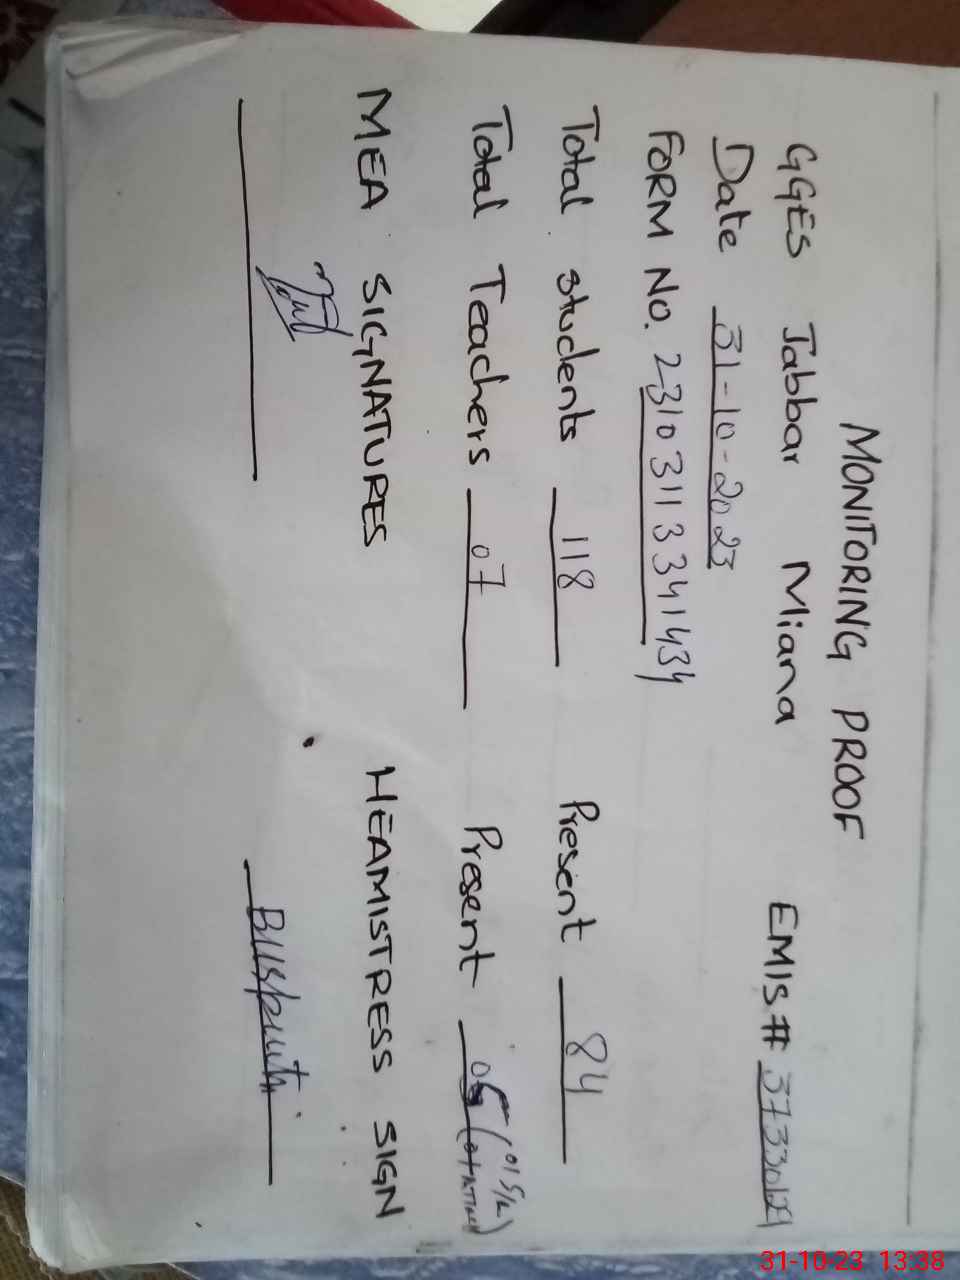 MONITORING PROOF
GGES Jabbar Miana EMIS# 37330129
Date 31-10-2023
FORM No. 231031133341434
Total students 118 Present 84
Total Teachers 07 Present 05 (01 S/L)
MEA SIGNATURES HEAMISTRESS SIGN
31-10-23 13:38